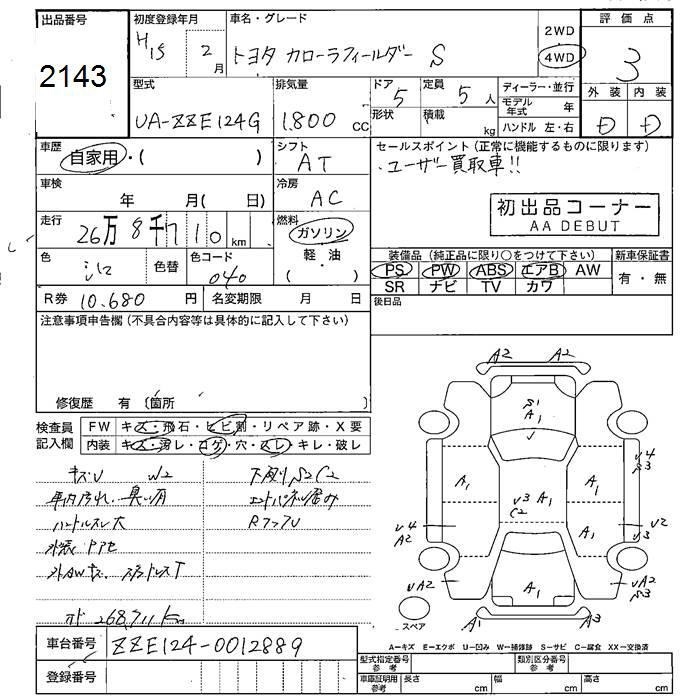 出品番号 初度登録年月 車名・グレード 評価点
2143 H15 2月 トヨタ カローラフィールダー S 2WD 4WD 3
型式 排気量 ドア 定員 ディーラー・並行 外装 内装
UA-ZZE124G 1.800 cc 5 5人 モデル年式 年 D D
形状 積載 kg ハンドル 左・右
車歴 シフト セールスポイント(正常に機能するものに限ります)
自家用・( ) AT ユーザー買取車!!
車検 冷房
年 月( 日) AC 初出品コーナー
AA DEBUT
走行 燃料
26万8千710km ガソリン 装備品(純正品に限り○をつけて下さい) 新車保証書
色 色替 色コード 軽・油 PS PW ABS エアB AW 有・無
シロ 040 ( ) SR ナビ TV カワ
R券 10.680円 名変期限 月 日 後日品
注意事項申告欄(不具合内容等は具体的に記入して下さい)
修復歴 有〔箇所 〕
検査員 FW キズ・飛石・ヒビ割・リペア跡・X要
記入欄 内装 キズ・汚レ・コゲ・穴・スレ・キレ・破レ
キズU W2 下廻りS2C2
車内汚れ.臭い有
ハンドルスレ大
外AWキズ スタッドレスT
オド 268,711km
車台番号 ZZE124-0012889
登録番号
A2 A2
S1
A1
U
A1 A1
U3 A1
C2
A1
A1
U4
S3
U4
A2
U2
U3
UA2 UA2
S3
A1 A3
スペア
A=キズ E=エクボ U=凹み W=補修跡 S=サビ C=腐食 XX=交換済
型式指定番号 参考 類別区分番号 参考
車庫証明用 参考 長さ cm 幅 cm 高さ cm